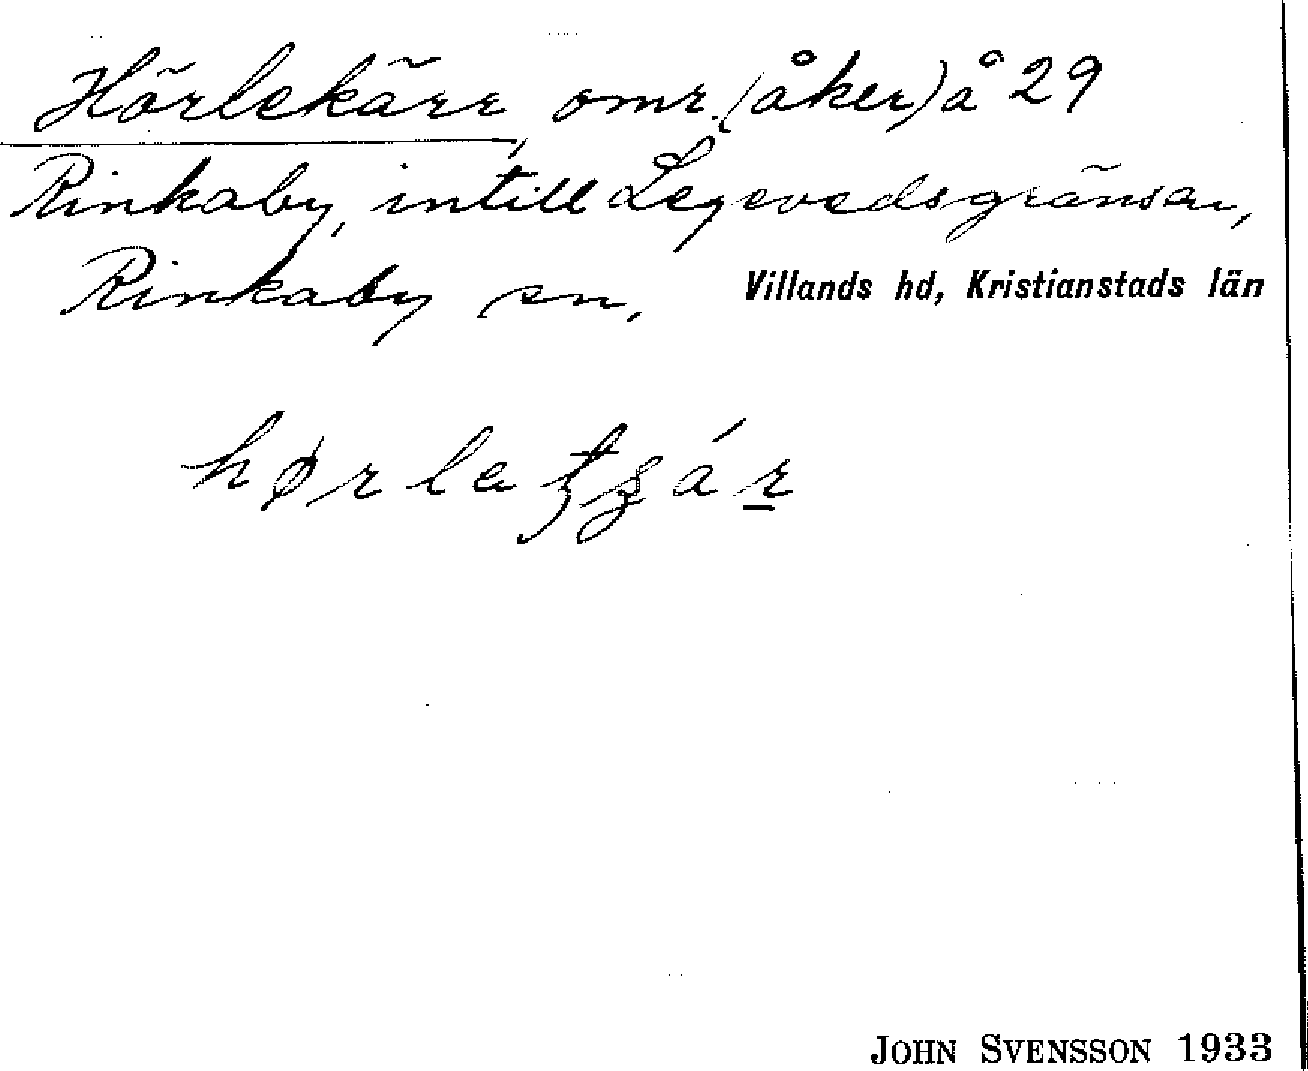 Hörlekärr, omr. (åker) å 29
Rinkaby, intill Legevedsgränsen,
Rinkaby sn, Villands hd, Kristianstads län
JOHN SVENSSON 1933